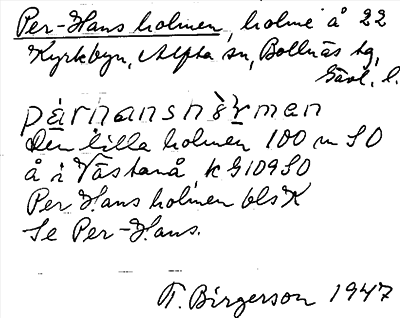 Per-Hans holmen, holme å 22
Kyrkbyn, Alfta sn, Bollnäs tg,
Gävl. l.
pärhanshɷrmen
Den lilla holmen 100 m SO
å i Västanå k G109SO
Per Hans holmen bls K
Se Per-Hans.
T. Birgerson 1947